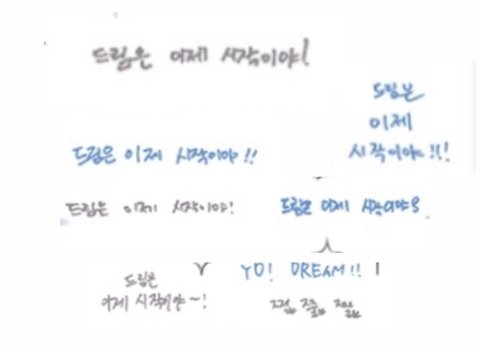 드림은 이제 시작이야!
드림은
이제
시작이야!!!
드림은 이제 시작이야!!
드림은 이제 시작이야!
드림은 이제 시작이야
드림은
이제 시작이야~!
YO! DREAM!!